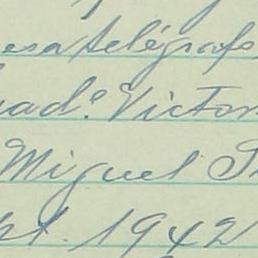 esa telégrafo
ad.º Victor
Miguel S
pt. 1942